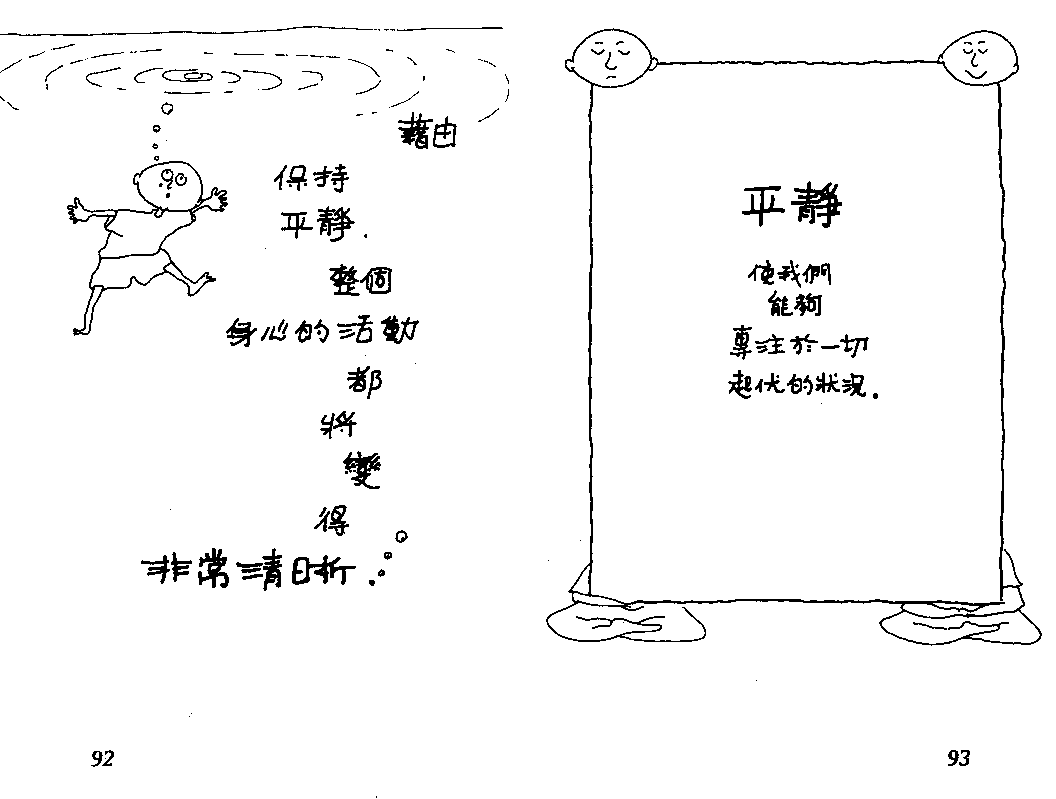 藉由
保持
平靜.
整個
身心的活動
都
將
變
得
非常清晰.
平靜
使我們
能夠
專注於一切
起伏的狀況.
92
93